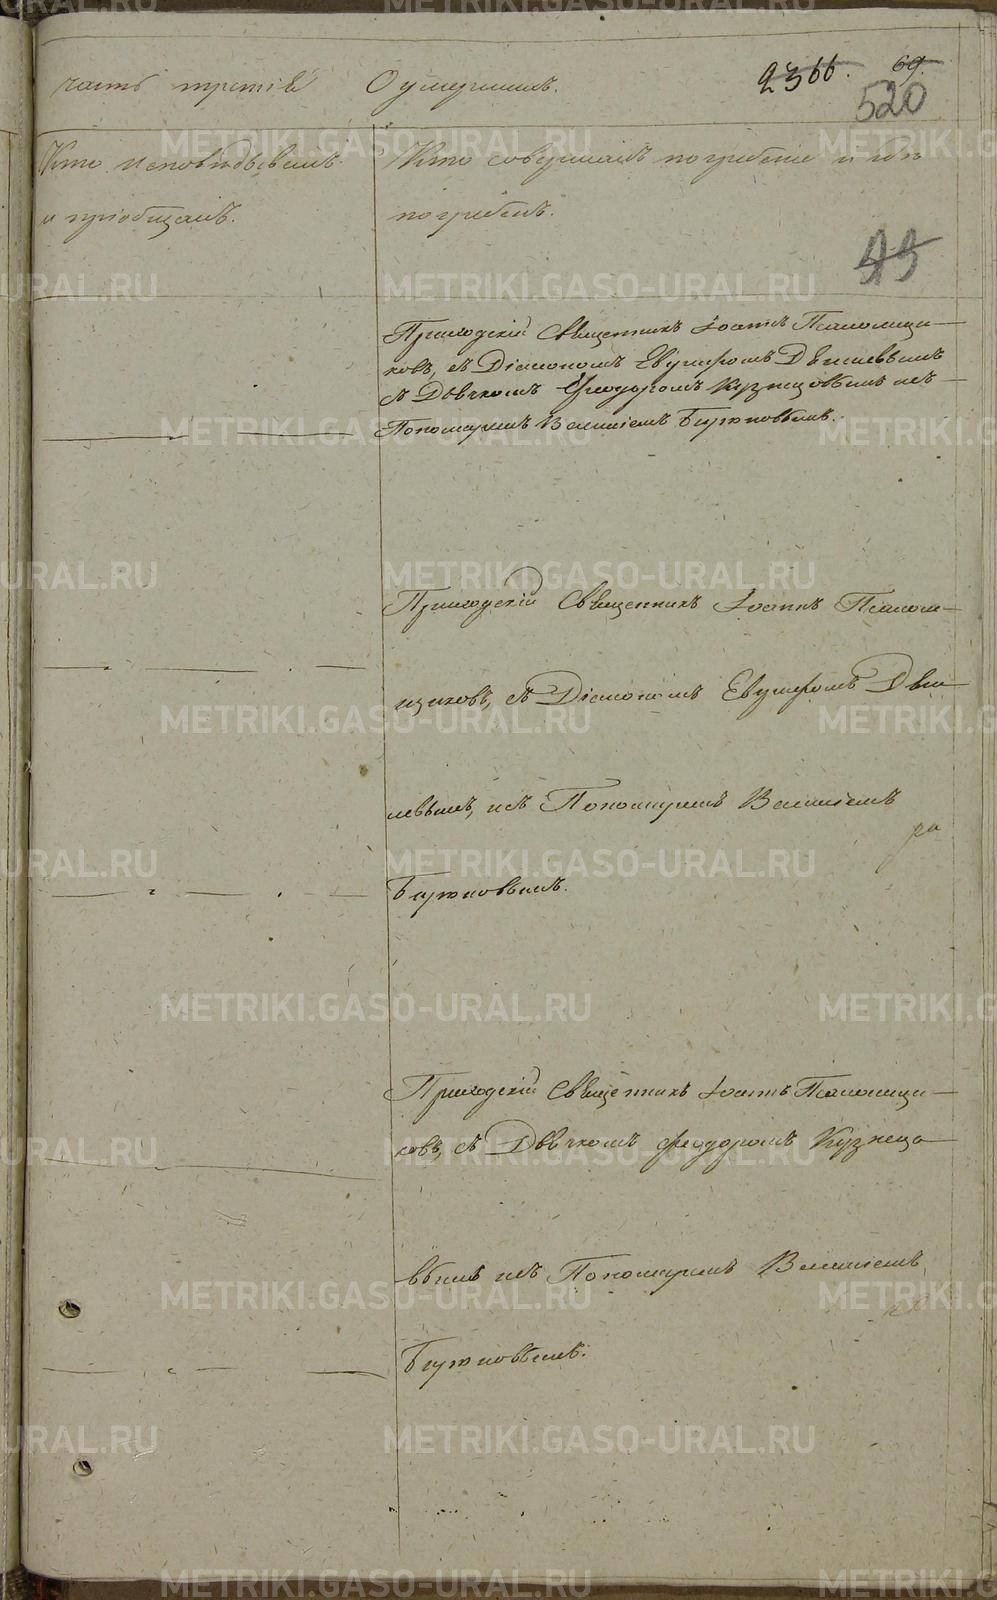 часть третія О умершихъ.
2366. 69.
520
Кто исповѣдывалъ
и пріобщалъ.
Кто совершалъ погребеніе и гдѣ
погребенъ.
Приходскій Священникъ Іоаннъ Псаломщи-
ковъ, съ Діакономъ Евграфомъ
съ Дьячкомъ Феодоромъ Кузнецовымъ и съ
Пономаремъ Василіемъ Бирюковымъ.
Приходскій Священникъ Іоаннъ Псалом-
щиковъ, съ Діакономъ Евграфомъ
и съ Пономаремъ Василіемъ
Бирюковымъ.
Приходскій Священникъ Іоаннъ Псаломщи-
ковъ, съ Дьячкомъ Феодоромъ Кузнецо-
вымъ и съ Пономаремъ Василіемъ
Бирюковымъ.
METRIKI.GASO-URAL.RU